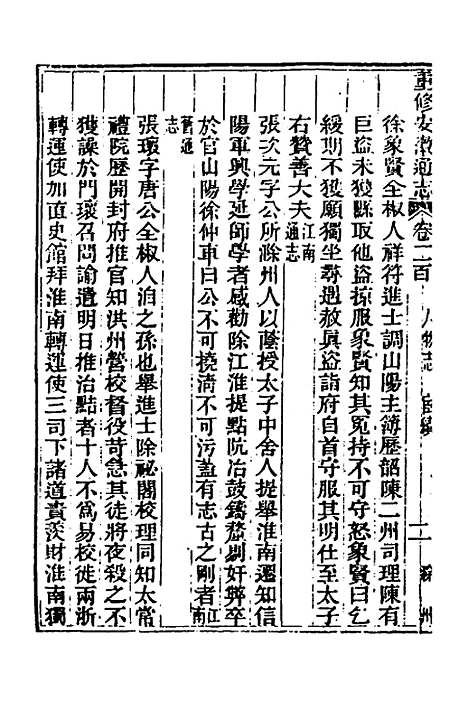 重修安徽通志 卷二百 人物志 宦績 二 滁州
徐象賢全椒人祥符進士調山陽主簿歷韶陳二州司理陳有
巨盜未獲縣取他盜掠服象賢知其冤持不可守怒象賢曰乞
緩期不獲願獨坐尋遇赦眞盜詣府自首守服其明仕至太子
右贊善大夫江南通志
張次元字公所滁州人以蔭授太子中舍人提舉淮南遷知信
陽軍興學延師學者咸勸除江淮提點阮冶鼓鑄鶩劌奸弊卒
於官山陽徐仲車曰公不可撓濤不可污蓋有志古之剛者江南
舊通志
張瓌字唐公全椒人洎之孫也舉進士除祕閣校理同知太常
禮院歷開封府推官知洪州營校督役苛急其徒將夜殺之不
獲譟於門瓌召問諭遣明日推治黠者十人不爲易校徙兩浙
轉運使加直史館拜淮南轉運使三司下諸道責羨財淮南獨